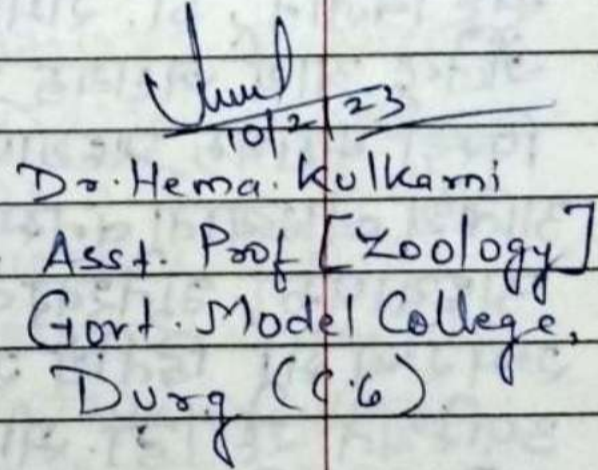 10/2/23
Dr. Hema. Kulkarni
Asst. Prof [Zoology]
Govt. Model College,
Durg (C.G)